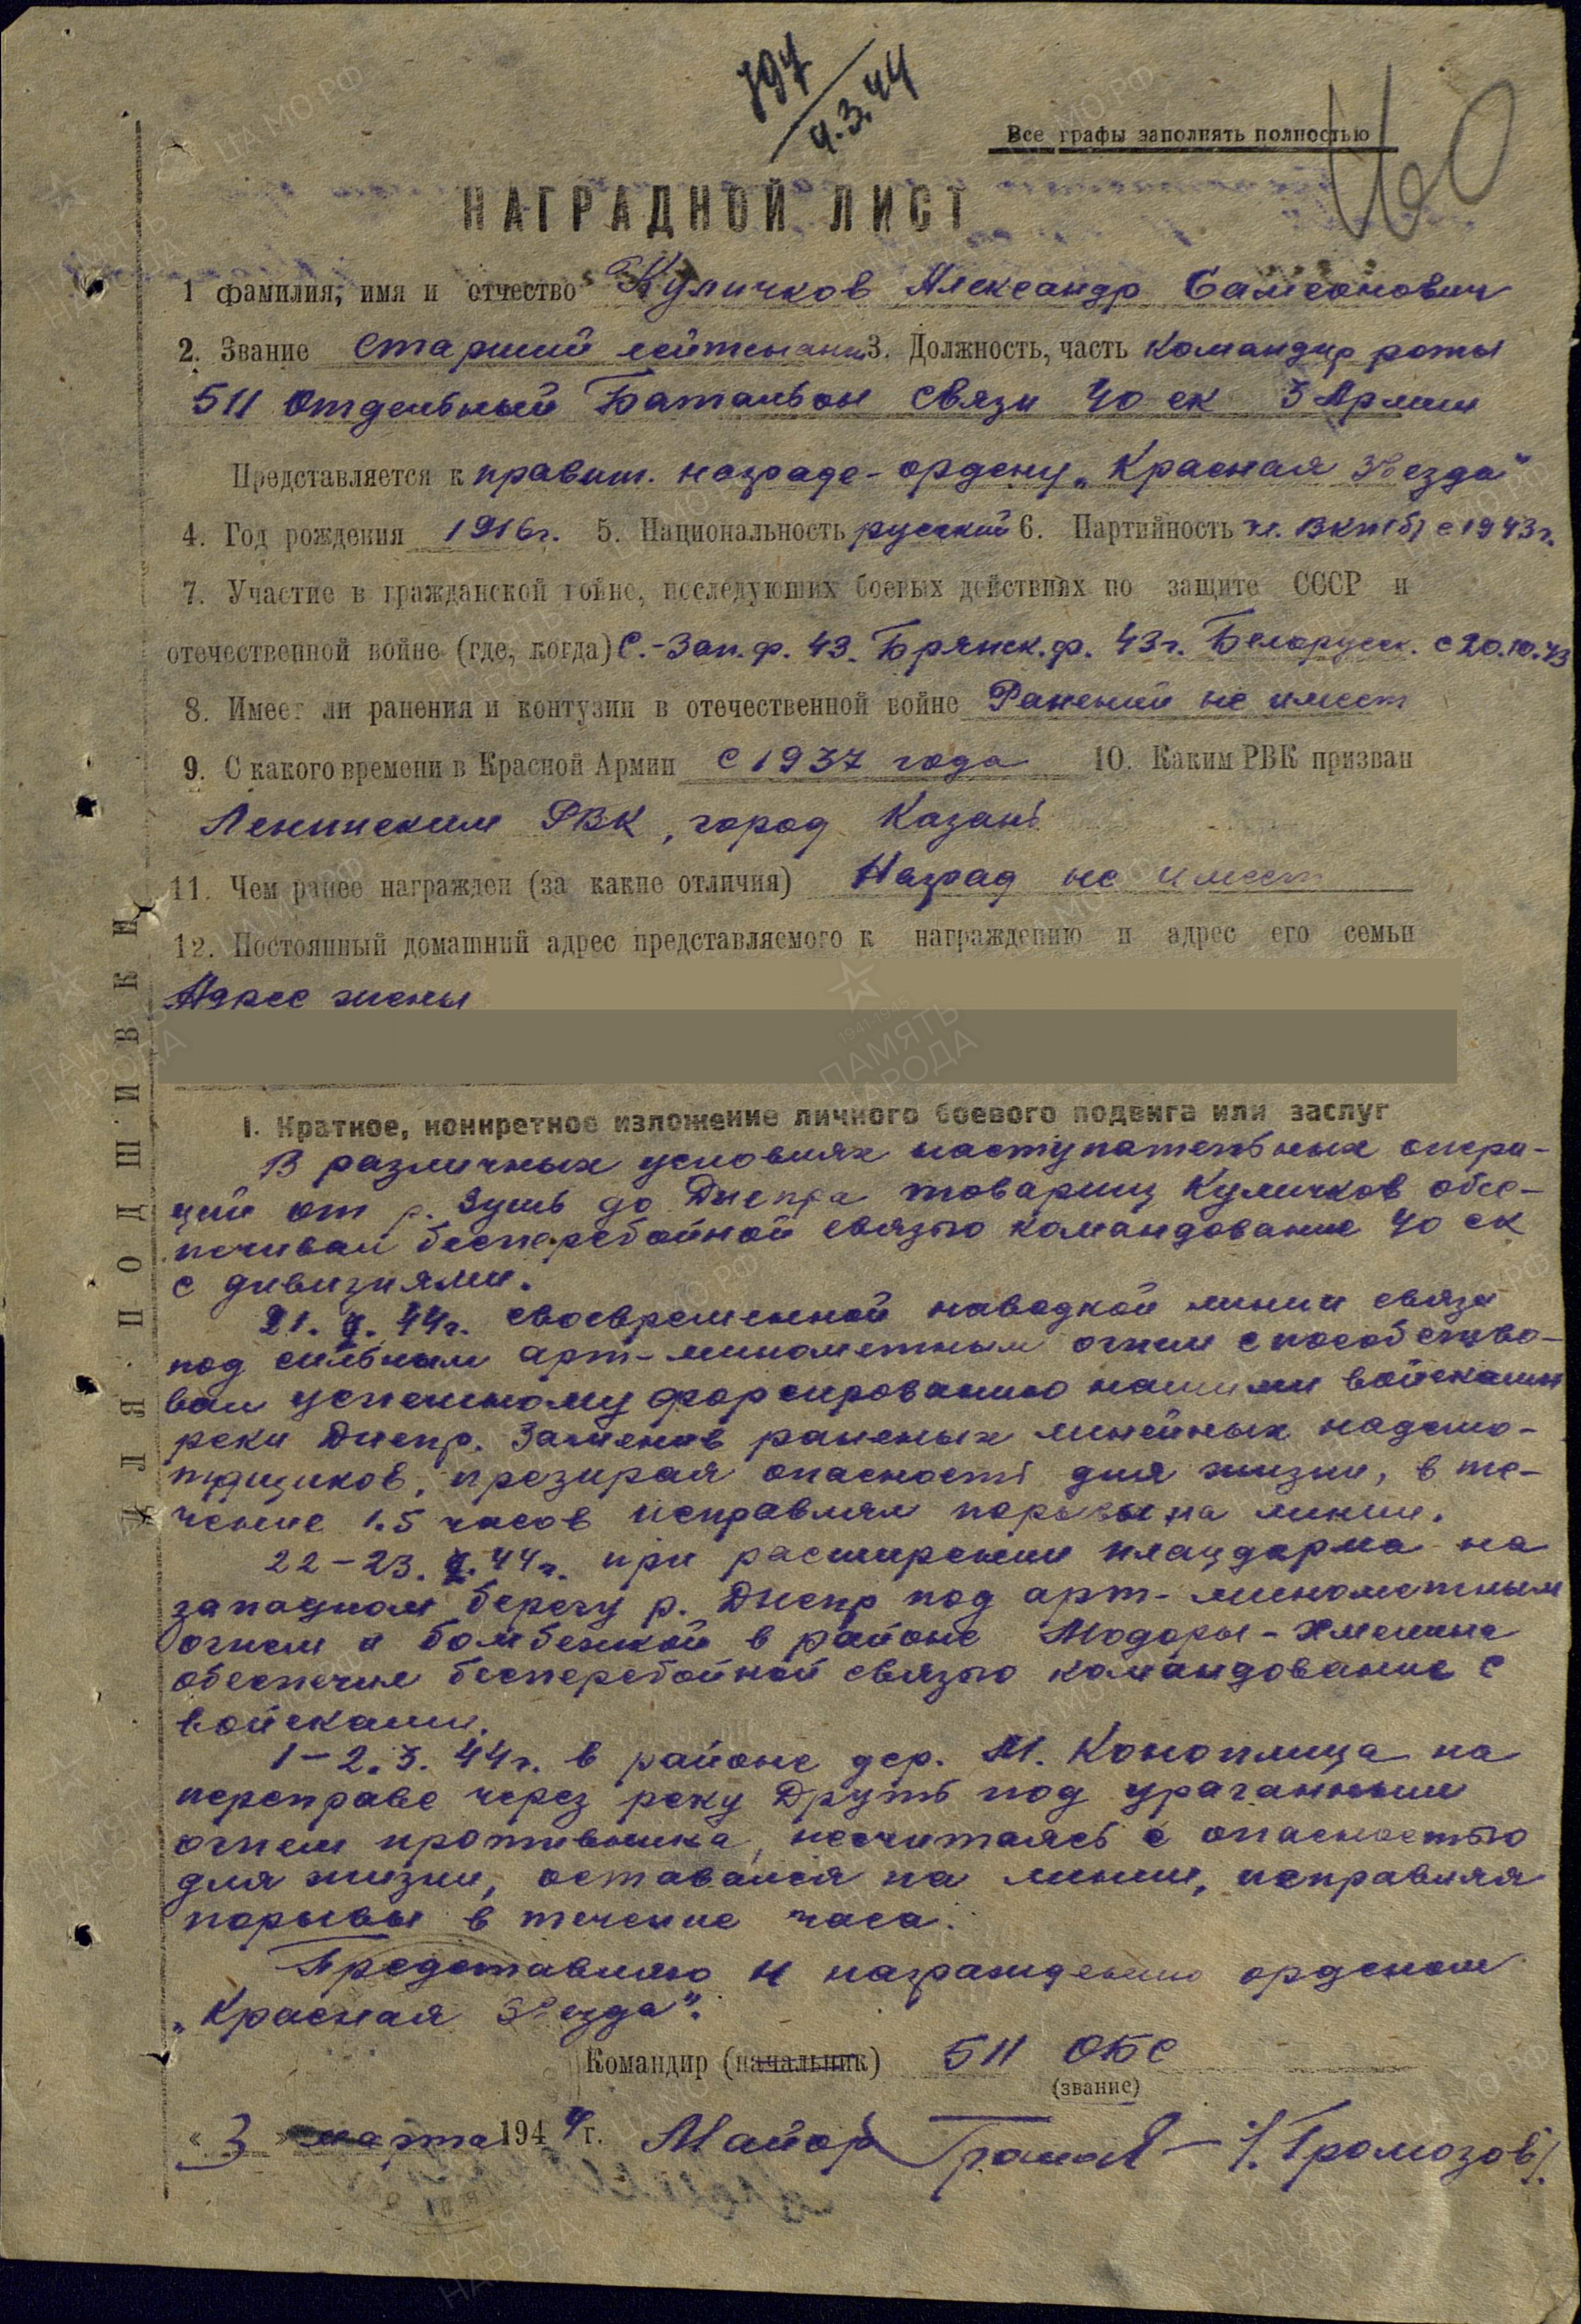 797
4.3.44
Все графы заполнять полностью
НАГРАДНОЙ ЛИСТ
1 фамилия, имя и отчество Куличков Александр Самсонович
2. Звание старший лейтенант 3. Должность, часть командир роты
511 Отдельный Батальон связи 40 ск 3 Армии
Представляется к правит. награде - ордену „Красная Звезда"
4. Год рождения 1916г. 5. Национальность русский 6. Партийность чл. ВКП(б) с 1943г.
7. Участие в гражданской войне, последующих боевых действиях по защите СССР и
отечественной войне (где, когда) С.-Зап.ф. 43. Брянск.ф. 43г. Белорусск. с 20.10.43
8. Имеет ли ранения и контузии в отечественной войне Ранений не имеет
9. С какого времени в Красной Армии с 1937 года 10. Каким РВК призван
Ленинским РВК, город Казань
11. Чем ранее награжден (за какие отличия) Наград не имеет
12. Постоянный домашний адрес представляемого к награждению и адрес его семьи
Адрес жены
I. Краткое, конкретное изложение личного боевого подвига или заслуг
В различных условиях наступательных опера-
ций от р. Зушь до Днепра товарищ Куличков обес-
печивал бесперебойной связью командование 40 ск
с дивизиями.
21.2.44г. своевременной наводкой линии связи
под сильным арт-минометным огнем способство-
вал успешному форсированию нашими войсками
реки Днепр. Заменив раненых линейных надсмо-
трщиков, презирая опасность для жизни, в те-
чение 1.5 часов исправлял порывы на линии.
22-23.2.44г. при расширении плацдарма на
западном берегу р. Днепр под арт-минометным
огнем и бомбежкой в районе Мадоры-Хмелина
обеспечил бесперебойной связью командование с
войсками.
1-2.3.44г. в районе дер. М. Коноплица на
переправе через реку Друть под ураганным
огнем противника, несчитаясь с опасностью
для жизни, оставался на линии, исправляя
порывы в течение часа.
Представляю к награждению орденом
„Красная Звезда".
Командир (начальник) 511 ОБС
(звание)
« 3 » марта 1944 г. Майор /Громозов/.
ДЛЯ ПОДШИВКИ
ЦА МО РФ
ПАМЯТЬ
НАРОДА